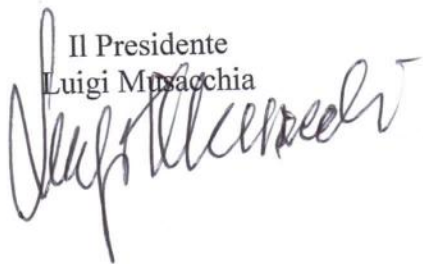 Il Presidente
Luigi Musacchia